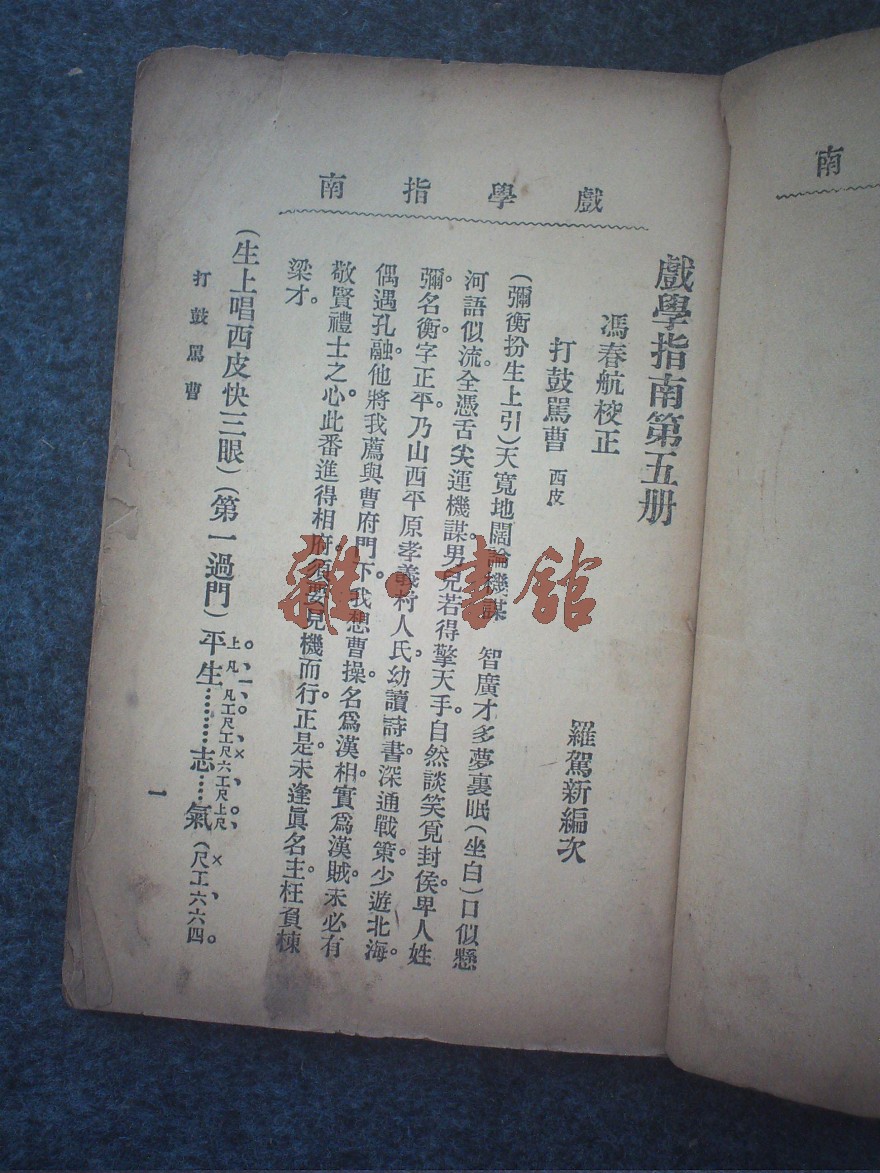 南指學戲
戲學指南第五册
馮春航校正
羅駕新編次
打鼓駡曹 西皮
（彌衡扮生上引）天寬地闊論機謀 智廣才多夢裏眠（坐白）口似懸
河語似流。全憑舌尖運機謀。男兒若得擎天手。自然談笑覓封侯。卑人姓
彌。名衡。字正平。乃山西平原孝義村人氏。幼讀詩書。深通戰策。少遊北海。
偶遇孔融。他將我薦與曹府門下。我想曹操名爲漢相。實爲漢賊。未必有
敬賢禮士之心。此番進得相府。須要見機而行。正是未逢眞名主。枉負棟
梁才。
（生上唱西皮快三眼）（第一過門）平生………志……氣（尺工六六四
上凡 凡工尺工尺六工尺上尺
打鼓駡曹
一
南
雜·書館